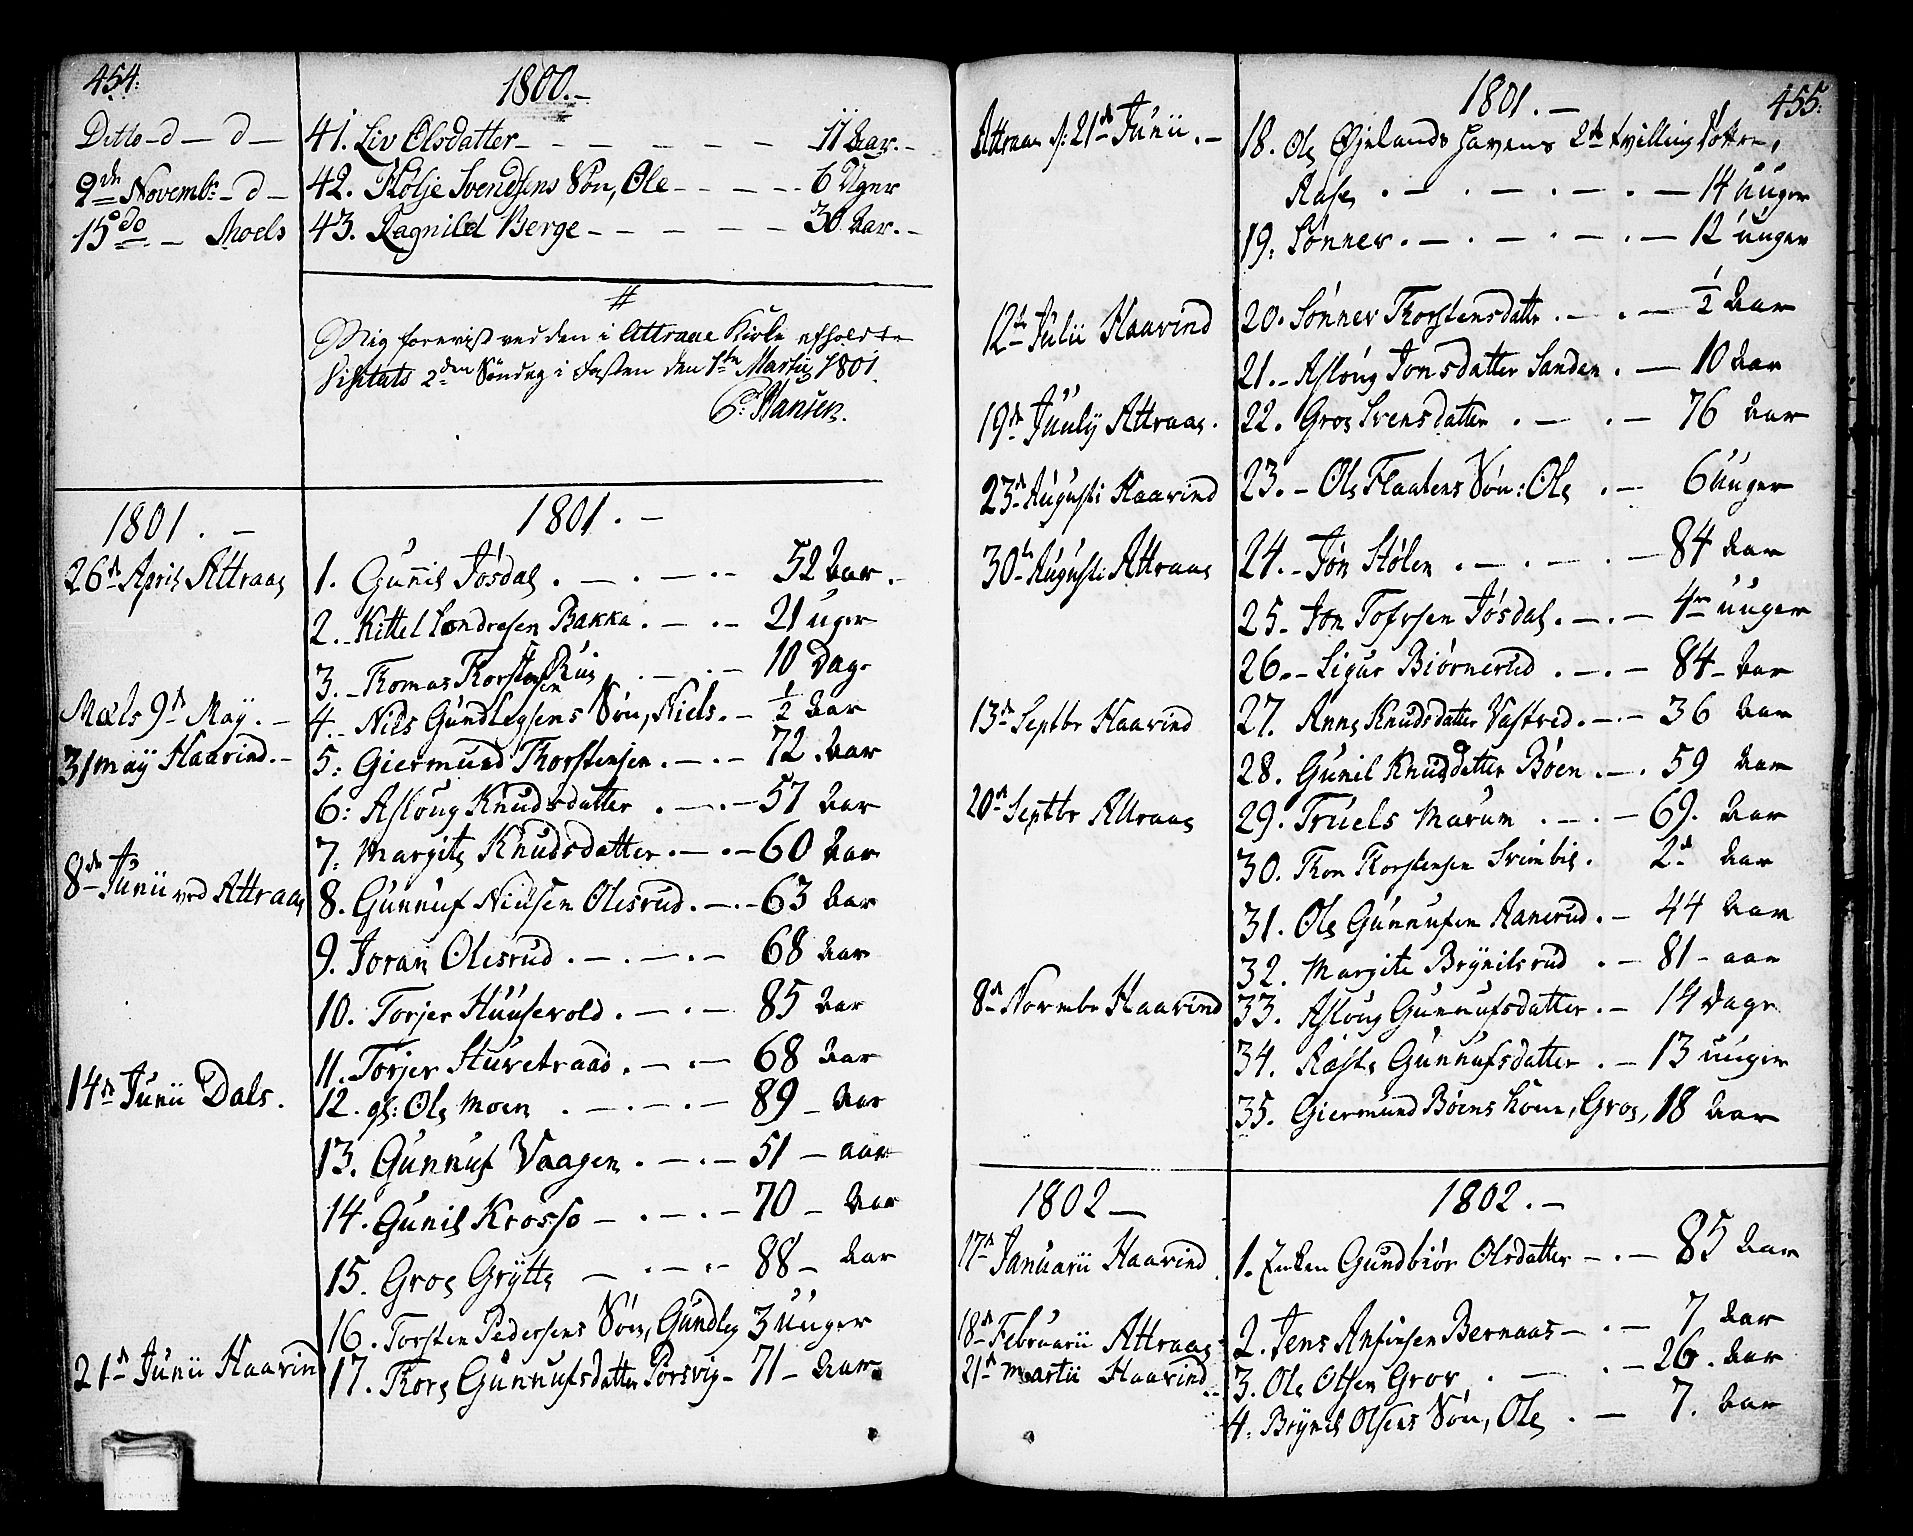 454.
1800.-
Ditto - d - d - 41. Liv Olsdatter - - - - - - 11 Aar. -
9de Novembr - d - 42. Kolje Svendsens Søn, Ole - - - - 6 Uger
15 do - Moels 43. Ragnild Berge - - - - - 30 Aar. -
#
Mig foreviist ved den i Attraae Kirke afholdte
Visitats 2den Søndag i Fasten den 1te Martii 1801.
P: Hansen.
1801. - 1801. -
26de April Attraae 1. Gunnil Jøsdal . - . - . - 52 Aar. -
2. Kittel Sondresen Bakka . - . - 21 uger
3. Thomas Thorstensen Rue . - . - 10 Dage
Mæls 9de May. - 4. Nils Gundlegsens Søn, Niels. - 1/2 Aar
31 may Haavind. - 5: Giermund Thorstensen . - . - 72 Aar
6: Asloug Knudsdatter . - . - 57 Aar
7: Margite Knudsdatter . - . - 60 Aar
8de Junii ved Attraae 8. Gunnuf Nielsen Olesrud . - . - 63 Aar
9. Joran Olesrud . - . - . - 68 Aar
10. Torjer Huusevold . - . - 85 Aar
11. Torjer Sturetraad . - . - 68 Aar
14de Junii Dals. 12. gl: Ole Moen . - . - . - 89 - Aar
13. Gunnuf Vaagen . - . - 51 - aar
14. Gunil Krosso - . - . - 70 - Aar
15. Groe Grytte - . - . - 88 - Aar
16. Torsten Pedersens Søn, Gundleg 3 uuger
21de Junii Haavind 17. Thore Gunnufsdatter Porsvig - 71 - Aar.
455.
1801. -
Attraae d: 21de Junii. - 18. Ole Øielands Havens 2de tvilling døttre,
Aase . - . - . - . - 14 uuger
19. Sønnev . - . - . - . - 12 uuger
12te Julii Haavind 20. Sønnev Thorstensdatter . - . - 1/2 Aar
21. - Asloug Jonsdatter Sanden . - 10 Aar
19de Juuly Attraae. 22. Groe Svensdatter . - . - 76 Aar
23de Augusti Haavind 23. - Ole Flaatens Søn: Ole . - 6 uuger
30te Augusti Attraae 24. - Jøn Stølen . - . - . - 84 Aar
25. Jon Tofesen Jøsdal . - . - 4re uuger
26. - Sigur Biørnerud . - . - 84 - Aar
13de Septbr Haavind 27. Anne Knudsdatter Vastved . - . - 36 Aar
28. Gunil Knudsdatter Bøen . - . 59 Aar
20de Septbr Attraae 29. Truels Marum . - . - 69. Aar
30. Thon Thorstensen Svinbil . 2de Aar
31. Ole Gunnufsen Aanerud . - 44 Aar
32. Margite Brynilsrud . - 81 - aar
8de Novembr Haavind 33. Asloug Gunnufsdatter . - 14 Dage
34. Aaste Gunnufsdatter . - 13 uuger
35. Giermund Bøens Kone, Groe, 18 Aar
1802 - 1802. -
17de Januarii Haavind 1. Enken Gundbiør Olsdatter - . - 85 Aar
18de Februarii Attraae 2. Jens Anfinsen Bernaas - . - 7 Aar
21de Martii Haavind 3. Ole Olsen Grov . - . - 26. Aar
4. Brynil Olsens Søn, Ole . - 7. Aar